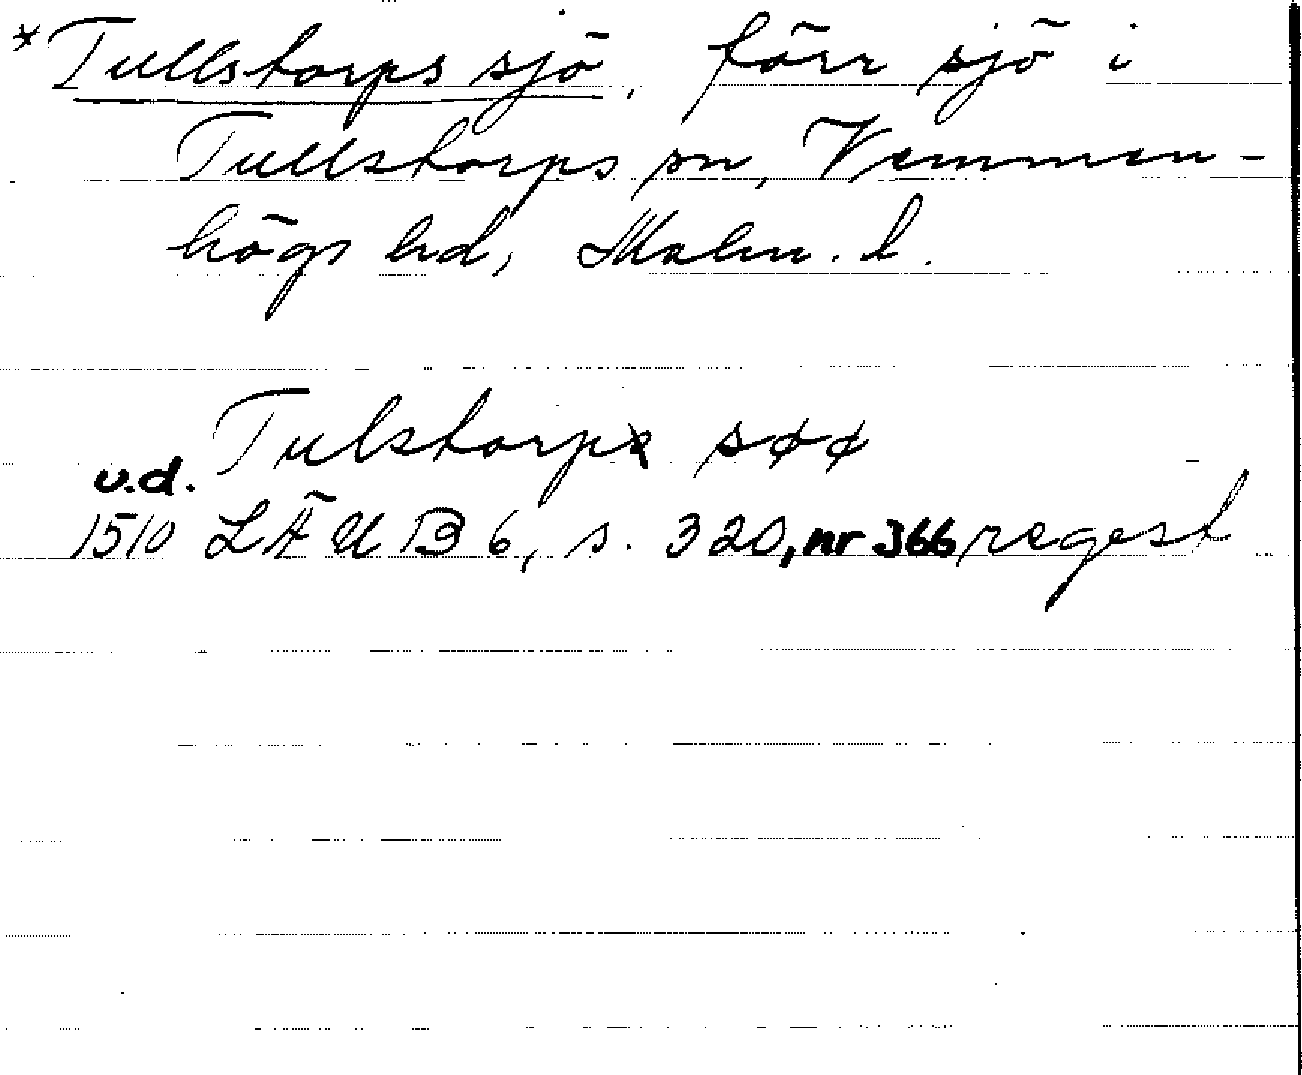 *Tullstorps sjö, förr sjö i
Tullstorps sn, Vemmen-
högs hd, Malm. l.
Tulstorpe søø
u.d.
1510 LÄUB 6, s. 320, nr 366 regest